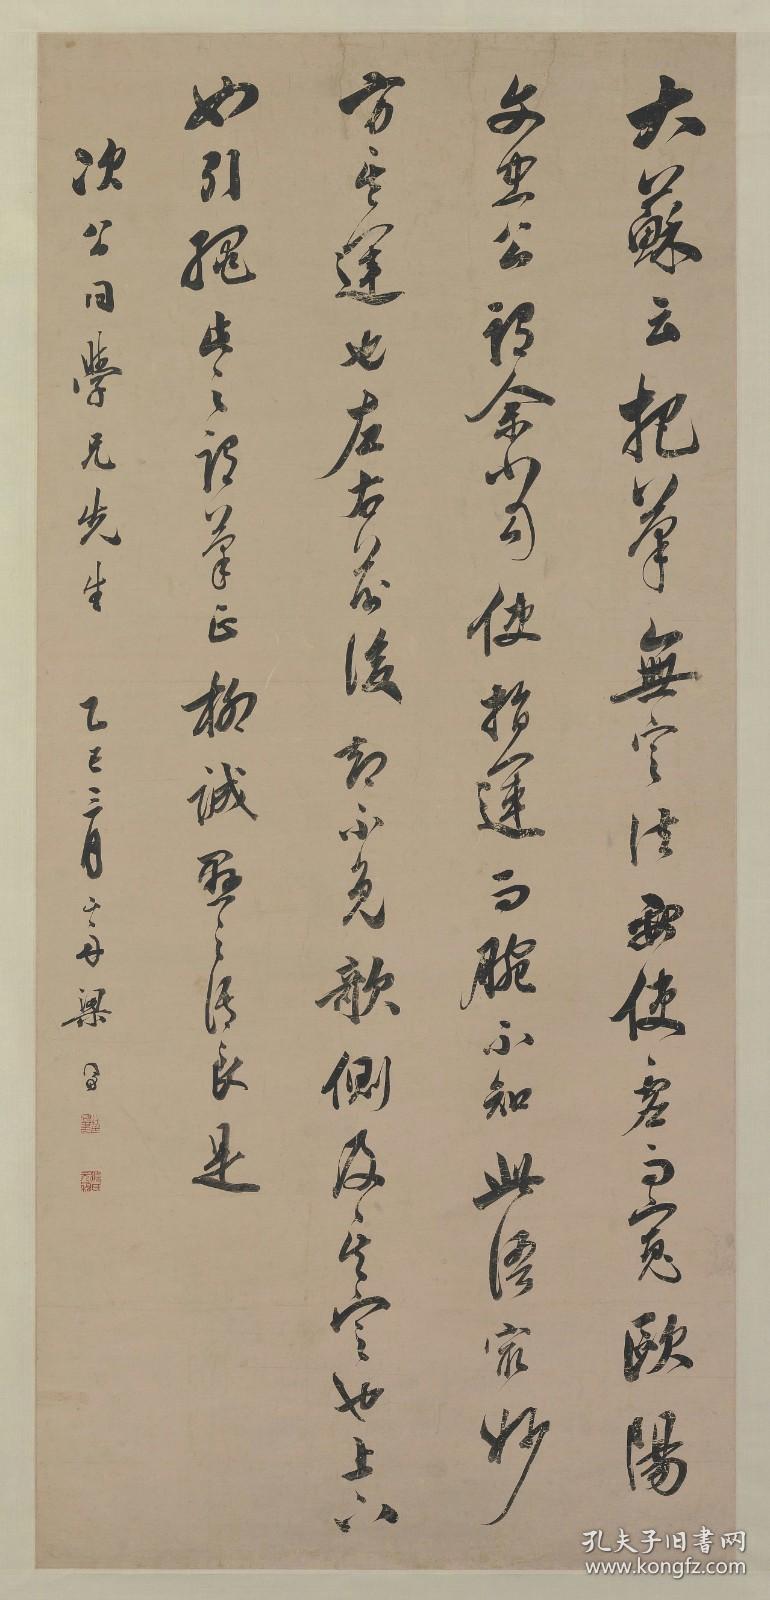 大蘇云把筆無定法要使虛而寬歐陽
文忠公謂余當使指運而腕不知此語最妙
方其運也左右前後却不免欹側及其定也上下
如引繩此之謂筆正柳誠懸之語良是
次公同學兄先生 乙巳三月 梁
孔夫子旧書网
www.kongfz.com